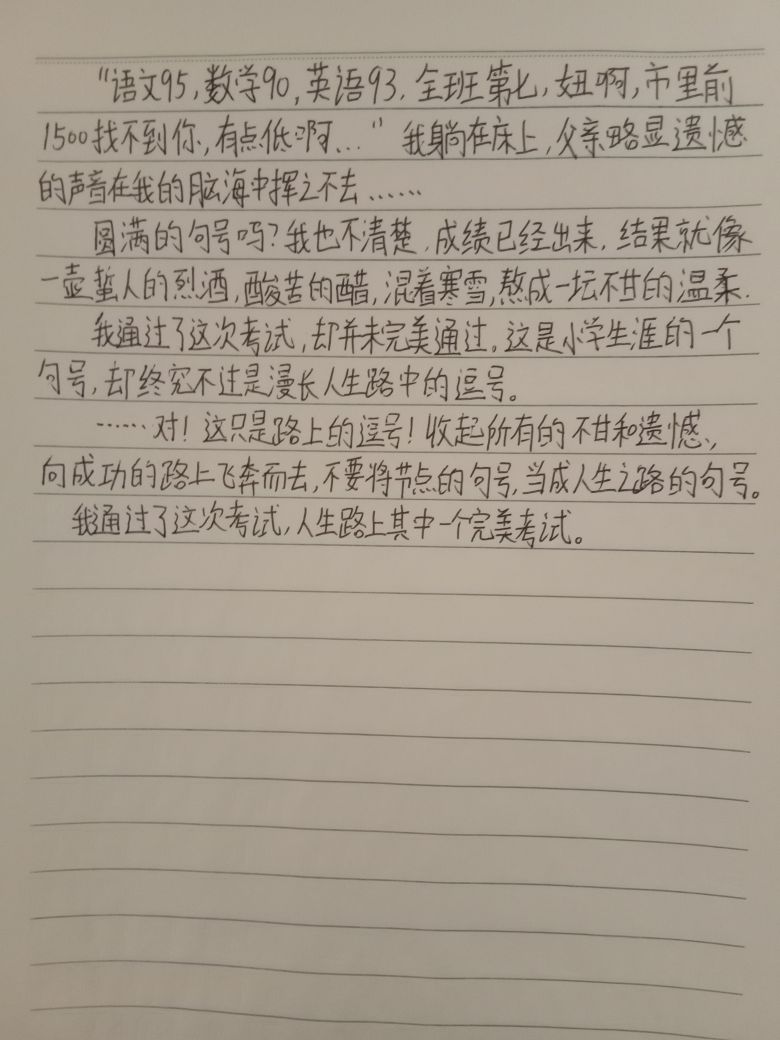 “语文95,数学90,英语93,全班第七,妞啊,市里前
1500找不到你,有点低啊…”我躺在床上,父亲略显遗憾
的声音在我的脑海中挥之不去……
圆满的句号吗?我也不清楚,成绩已经出来,结果就像
一壶蜇人的烈酒,酸苦的醋,混着寒雪,熬成一坛不甘的温柔.
我通过了这次考试,却并未完美通过。这是小学生涯的一个
句号,却终究不过是漫长人生路中的逗号。
……对!这只是路上的逗号!收起所有的不甘和遗憾,
向成功的路上飞奔而去,不要将节点的句号,当成人生之路的句号。
我通过了这次考试,人生路上其中一个完美考试。